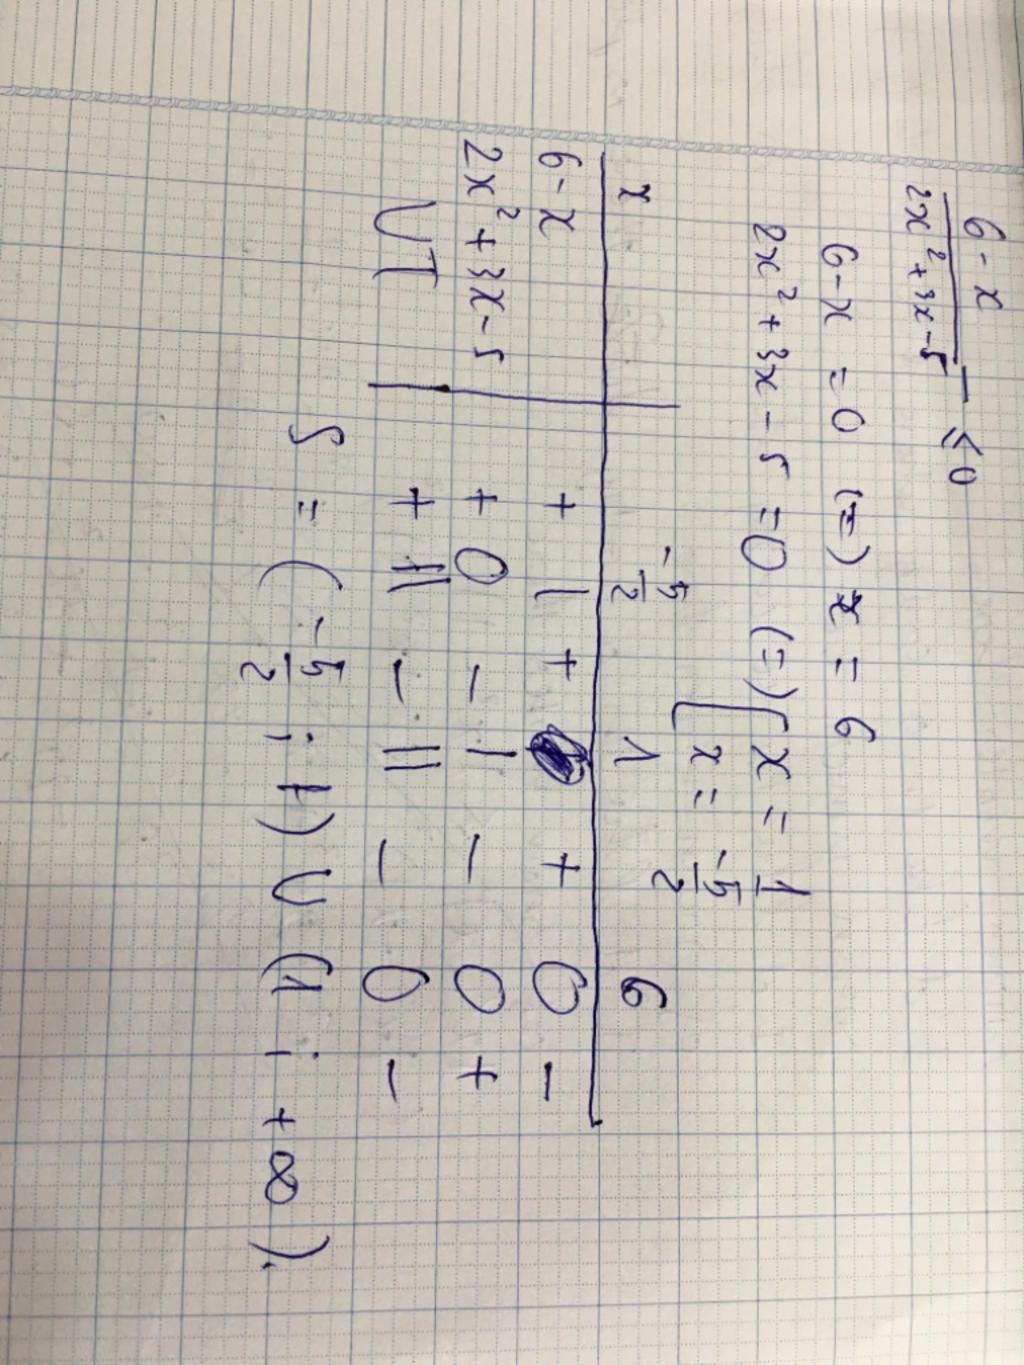 6 - x
2x² + 3x - 5
≤ 0
6 - x = 0 (=) x = 6
2x² + 3x - 5 = 0 (=) [ x = 1
x = -5/2
x -5/2 1 6
6 - x + | + + 0 -
2x² + 3x - 5 + 0 - | - 0 +
VT + || - || - 0 -
S = (-5/2 ; 1) ∪ (1 ; +∞).